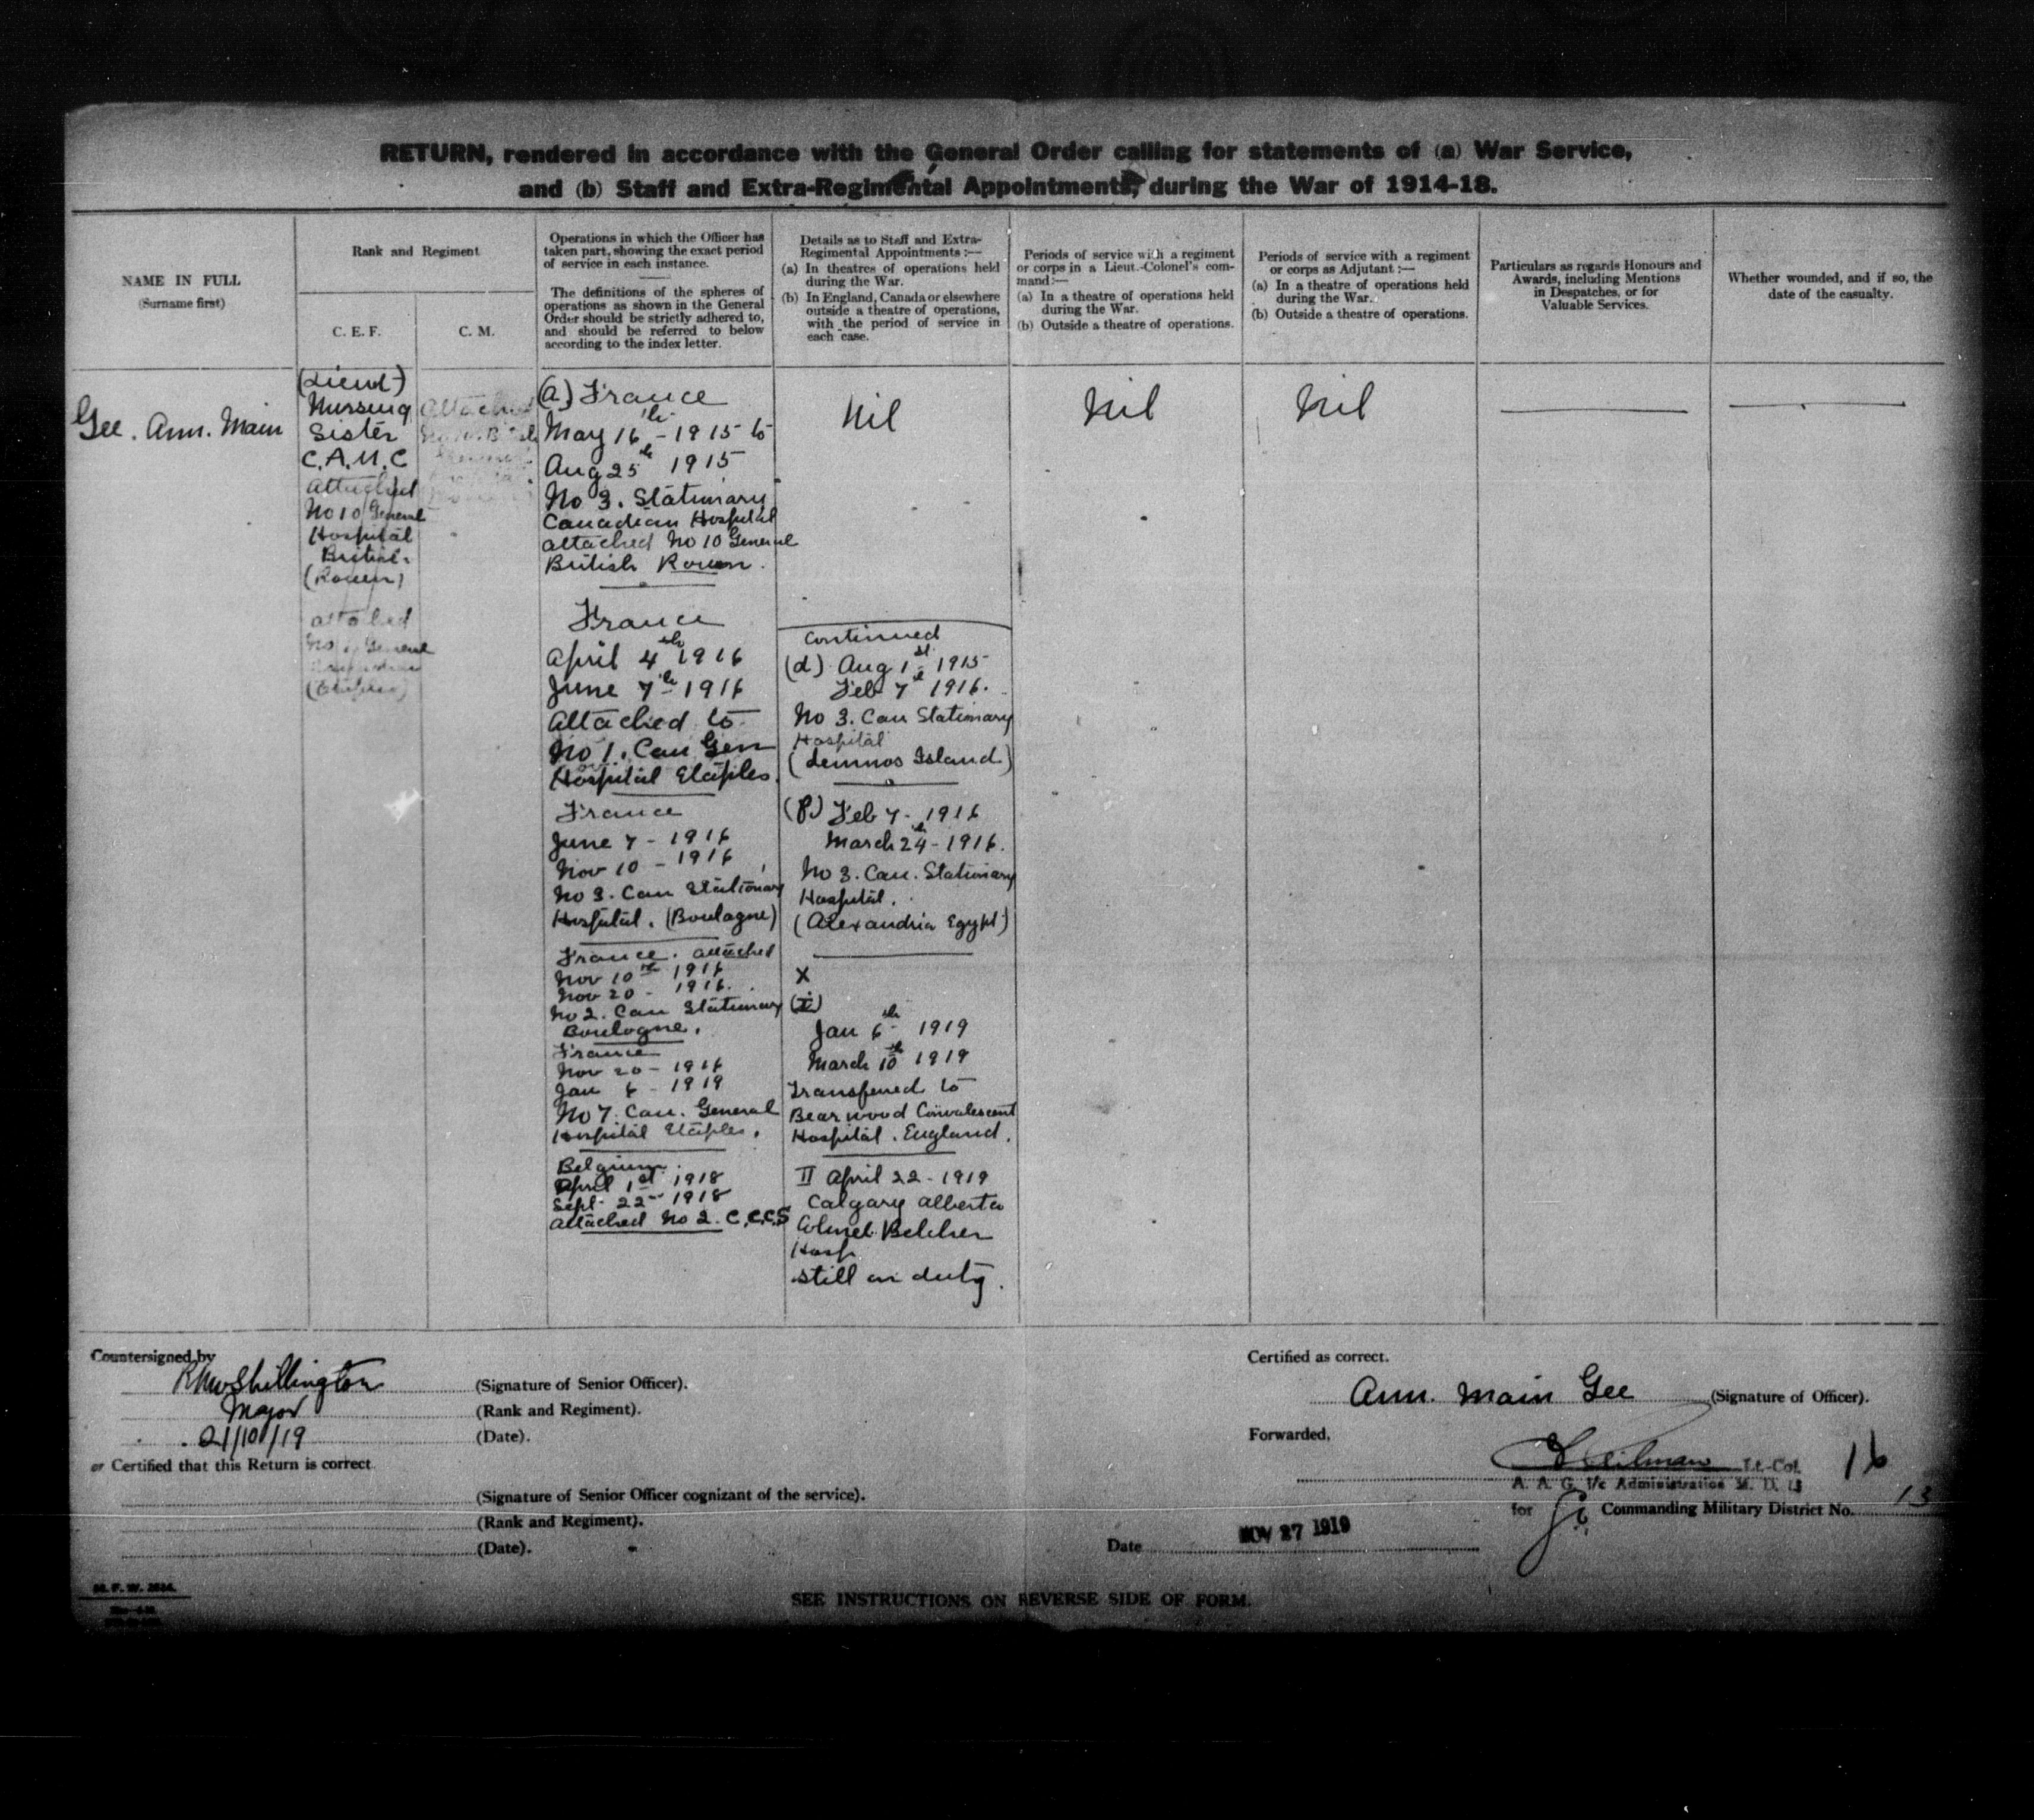 RETURN, rendered in accordance with the General Order calling for statements of (a) War Service,
and (b) Staff and Extra-Regimental Appointments, during the War of 1914-18.
NAME IN FULL
(Surname first)
Rank and Regiment
C. E. F.
C. M.
Operations in which the Officer has
taken part, showing the exact period
of service in each instance.
The definitions of the spheres of
operations as shown in the General
Order should be strictly adhered to,
and should be referred to below
according to the index letter.
Details as to Staff and Extra-
Regimental Appointments :—
(a) In theatres of operations held
during the War.
(b) In England, Canada or elsewhere
outside a theatre of operations,
with the period of service in
each case.
Periods of service with a regiment
or corps in a Lieut.-Colonel's com-
mand:—
(a) In a theatre of operations held
during the War.
(b) Outside a theatre of operations.
Periods of service with a regiment
or corps as Adjutant :—
(a) In a theatre of operations held
during the War.
(b) Outside a theatre of operations.
Particulars as regards Honours and
Awards, including Mentions
in Despatches, or for
Valuable Services.
Whether wounded, and if so, the
date of the casualty.
Gee. Ann. Main
(Lieut)
Nursing
Sister
C.A.M.C
attached
No 10 General
Hospital
British
(Rouen)
attached
No 1 General
(Etaples)
Attached
(a) France
May 16th - 1915 to
Aug 25th 1915
No 3. Stationary
Canadian Hospital
attached No 10 General
British Rouen.
France
April 4th 1916
June 7th 1916
Attached to
No 1. Can Gen
Hospital Etaples.
France
June 7 - 1916
Nov 10 - 1916
No 3. Can Stationary
Hospital. (Boulogne)
France. attached
Nov 10th 1916
Nov 20 - 1916.
No 2. Can Stationary
Boulogne.
France
Nov 20 - 1916
Jan 6 - 1919
No 7. Can. General
Hospital Etaples.
Belgium.
April 1st 1918
Sept 22nd 1918
attached No 2. C.C.C.S
Nil
Continued
(d) Aug 1st 1915
Feb 7th 1916.
No 3. Can Stationary
Hospital
(Lemnos Island)
(f) Feb 7 - 1916
March 24th - 1916.
No 3. Can. Stationary
Hospital.
(Alexandria Egypt)
X
(i)
Jan 6th 1919
March 10th 1919
Transferred to
Bearwood Convalescent
Hospital. England.
II April 22 - 1919
Calgary Alberta
Colonel Belcher
Hosp
still on duty.
Nil
Nil
Countersigned by
Shillington
(Signature of Senior Officer).
Major
(Rank and Regiment).
21/10/19
(Date).
or Certified that this Return is correct
(Signature of Senior Officer cognizant of the service).
(Rank and Regiment).
(Date).
Certified as correct.
Ann. Main Gee
(Signature of Officer).
Forwarded,
Lt.-Col.
16
A. A. G. i/c Administration M. D. 13
for
Commanding Military District No. 13
Date NOV 27 1919
M. F. W.
SEE INSTRUCTIONS ON REVERSE SIDE OF FORM.